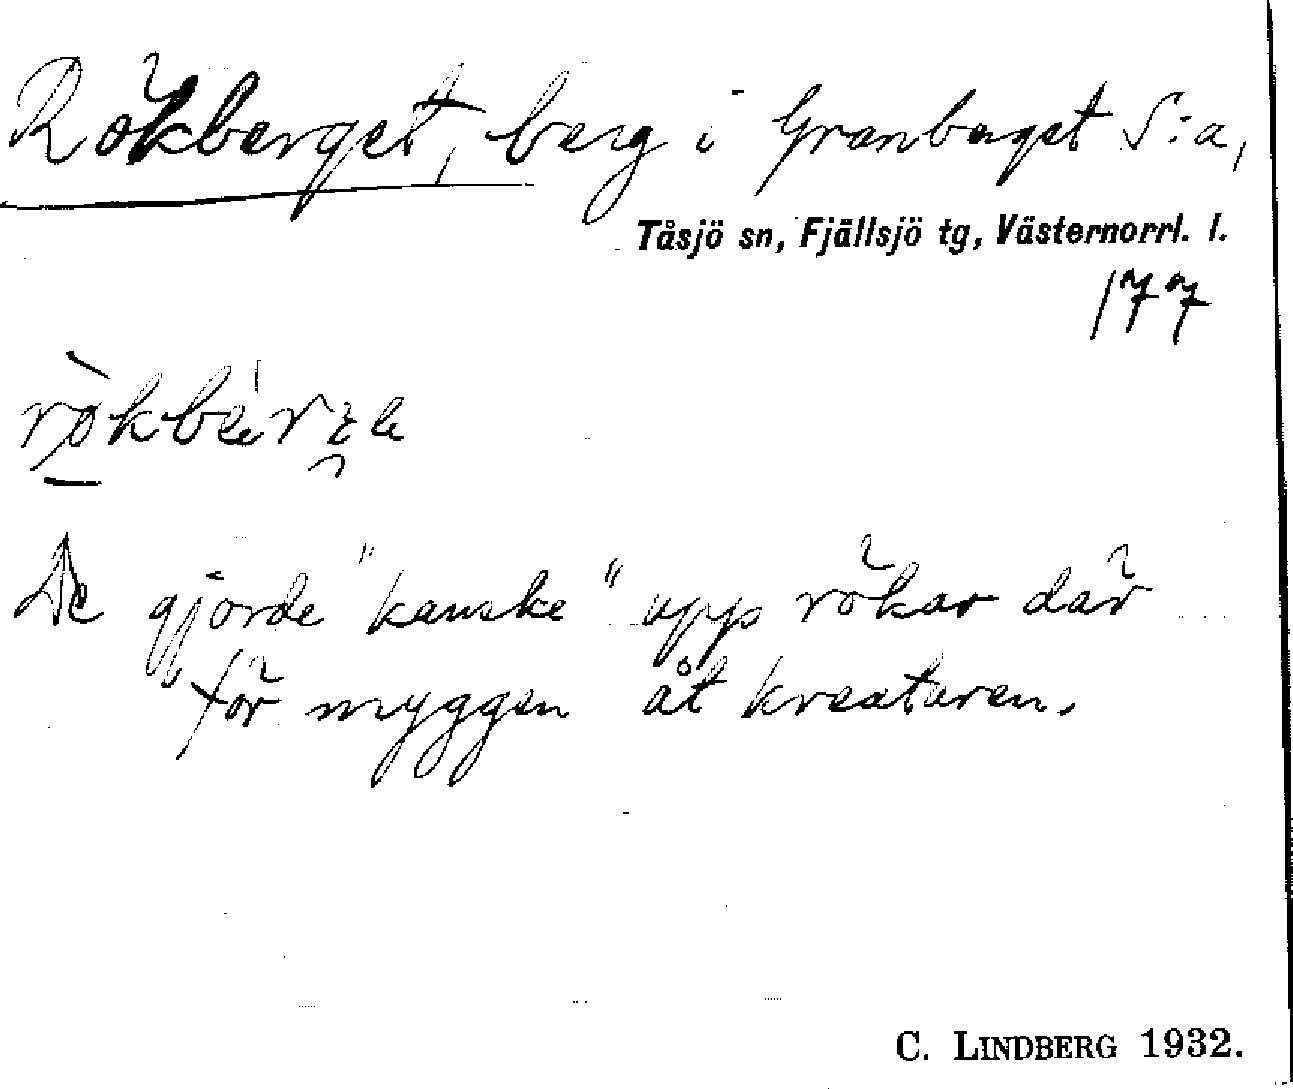 Rökberget, berg i Granberget S:a,
Tåsjö sn, Fjällsjö tg, Västernorrl. l.
177
De gjorde "kanske" upp rökar där
för myggen åt kreaturen.
C. LINDBERG 1932.